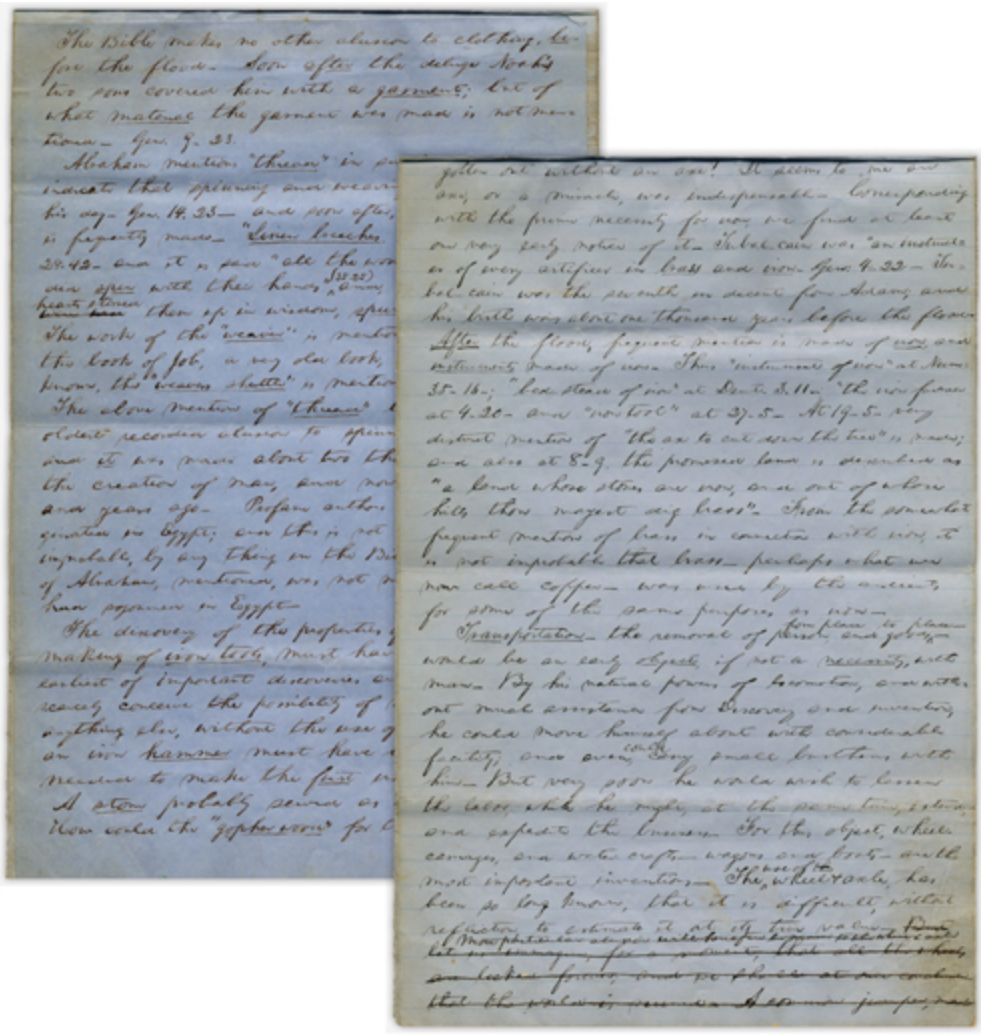 The Bible makes no other alusion to clothing, be-
fore the flood. Soon after the deluge Noah's
two sons covered him with a garment; but of
what material the garment was made is not men-
tioned. Gen. 9-23.
Abraham mentions "thread" in su
indicate that spinning and weavin
his day- Gen. 14.23- and soon after,
is frequently made- "Linen breeches
28.42- and it is said "all the wom
did spin with their hands (35-25)
hearts stirred them up in wisdom, spun
The work of the "weaver" is mention
the book of Job, a very old book,
known, the "weavers shuttle" is mention
The above mention of "thread"
oldest recorded alusion to spinn
and it was made about two tho
the creation of man, and now
and years ago- Profane author
ginated in Egypt; and this is not
improbable, by any thing in the Bib
of Abraham, mentioned, was not m
had sojourned in Egypt-
The discovery of the properties
making of iron tools, must hav
earliest of important discoveries an
scarcely conceive the possibility of
anything else, without the use of
an iron hammer must have
needed to make the first
A stone probably served as
How could the "gopher wood" for
gotten out without an axe? It seems to me an
axe, or a miracle, was indispensable- Corresponding
with the prime necessity for iron, we find at least
one very early notice of it- Tubal-cain was "an instruct-
er of every artificer in brass and iron- Gen. 4-22- Tu-
bal-cain was the seventh in decent from Adam; and
his birth was about one thousand years before the flood-
After the flood, frequent mention is made of iron, and
instruments made of iron- Thus "instrument of iron" at Num:
35-16-; "bed-stead of iron" at Deut. 3.11- "the iron furnace
at 4-20- and "iron tool" at 27-5- At 19-5- very
distinct mention of "the ax to cut down the tree" is made;
and also at 8-9, the promised land is described as
"a land whose stones are iron, and out of whose
hills thou mayest dig brass"- From the somewhat
frequent mention of brass in connection with iron, it
is not improbable that brass- perhaps what we
now call copper- was used by the ancients
for some of the same purposes as iron-
Transportation- the removal of person, and goods- from place to place-
would be an early object, if not a necessity, with
man- By his natural powers of locomotion, and with-
out much assistance from Discovery and invention,
he could move himself about with considerable
facility; and even, could carry small burthens with
him- But very soon he would wish to lessen
the labor, while he might, at the same time, extend,
and expedite the business- For this object, wheel-
carriages, and water-crafts- wagons and boats- are the
most important inventions- The use of the wheel & axle, has
been so long known, that it is difficult, without
reflection, to estimate it at its true value-
let us imagine, for a moment, that all the wheels
are locked forever, and we shall at once conclude
that the world is ruined-